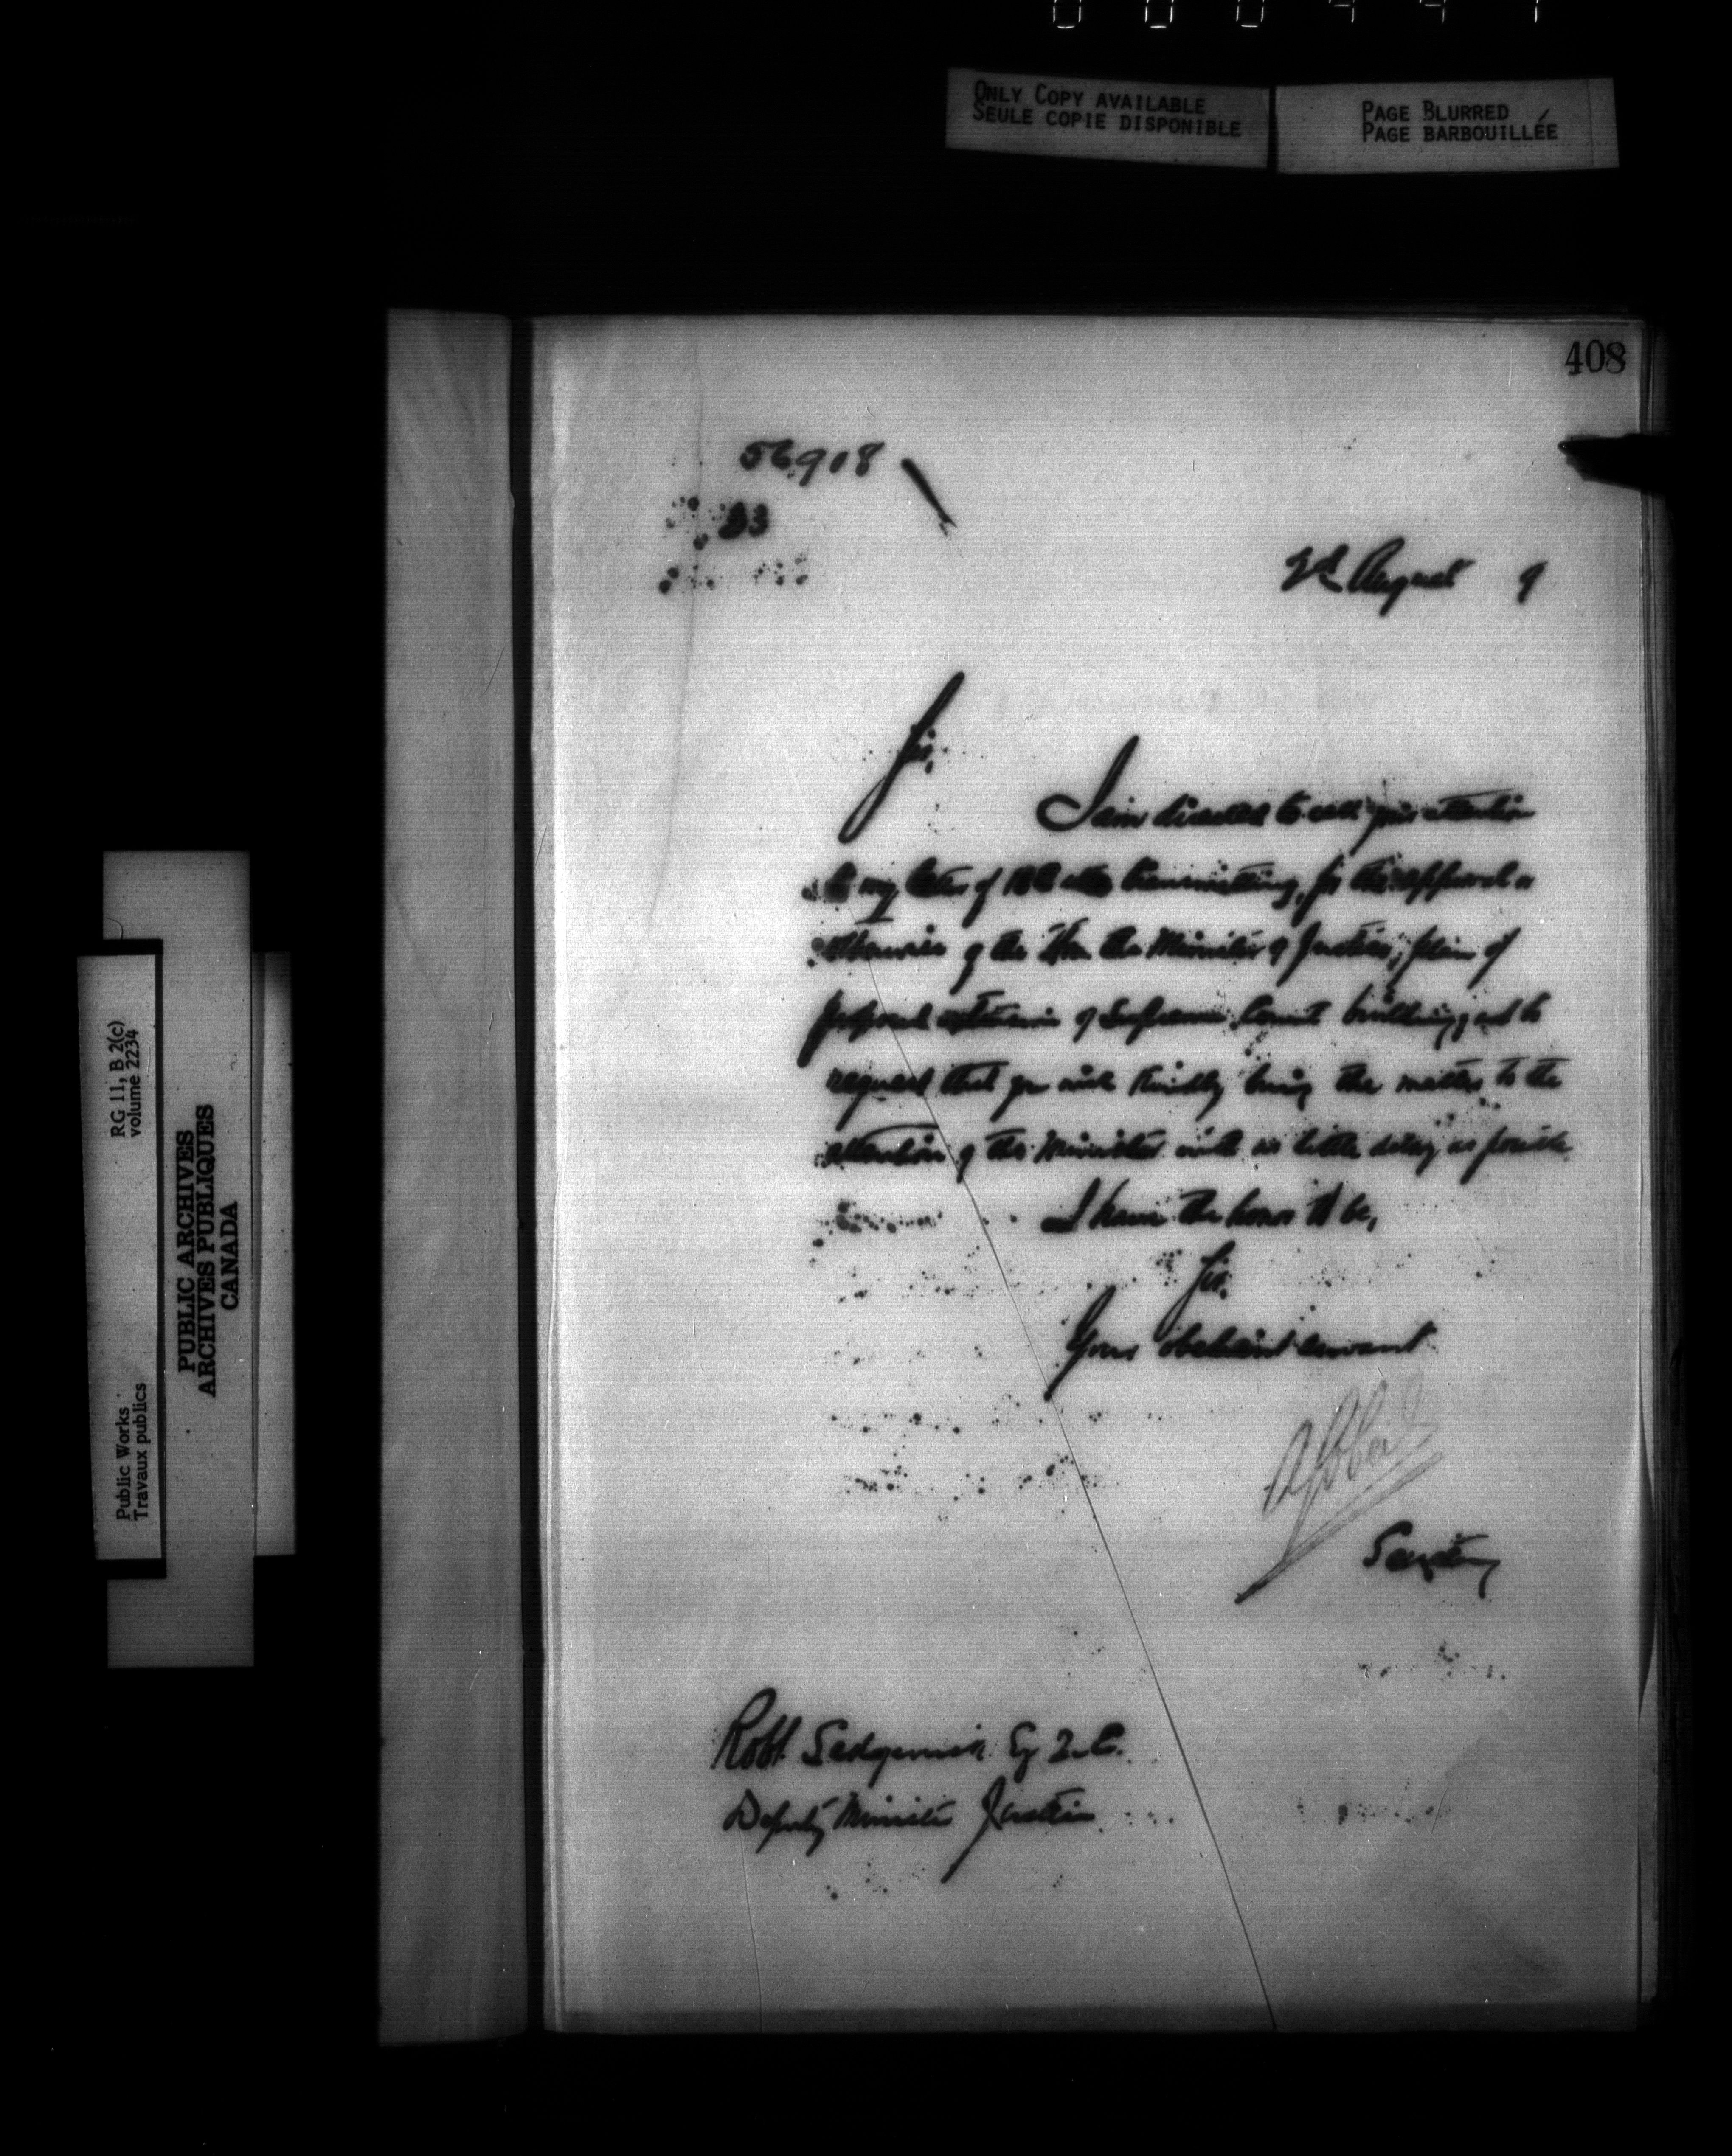 ONLY COPY AVAILABLE
SEULE COPIE DISPONIBLE
PAGE BLURRED
PAGE BARBOUILLÉE
408
56918
33
2d August 9
Sir,
I am directed to call your attention
to my letter of transmitting, for the approval or
otherwise of the Hon. the Minister of Justice, plan of
proposed extension of Supreme Court building, and to
request that you will kindly bring the matter to the
attention of the Minister with as little delay as possible
I have the honor to be,
Sir,
Your obedient servant
Secretary
Robt. Sedgewick Esq Q.C.
Deputy Minister Justice
RG 11, B 2(c)
volume 2234
PUBLIC ARCHIVES
ARCHIVES PUBLIQUES
CANADA
Public Works
Travaux publics